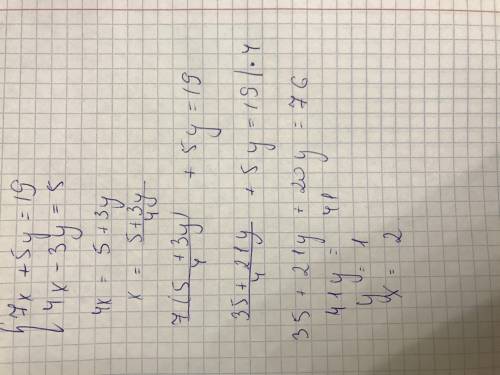 {7x + 5y = 19
4x - 3y = 5
4x = 5 + 3y
x = (5 + 3y)/4
7(5 + 3y)/4 + 5y = 19
(35 + 21y)/4 + 5y = 19 | · 4
35 + 21y + 20y = 76
41y = 41
y = 1
x = 2